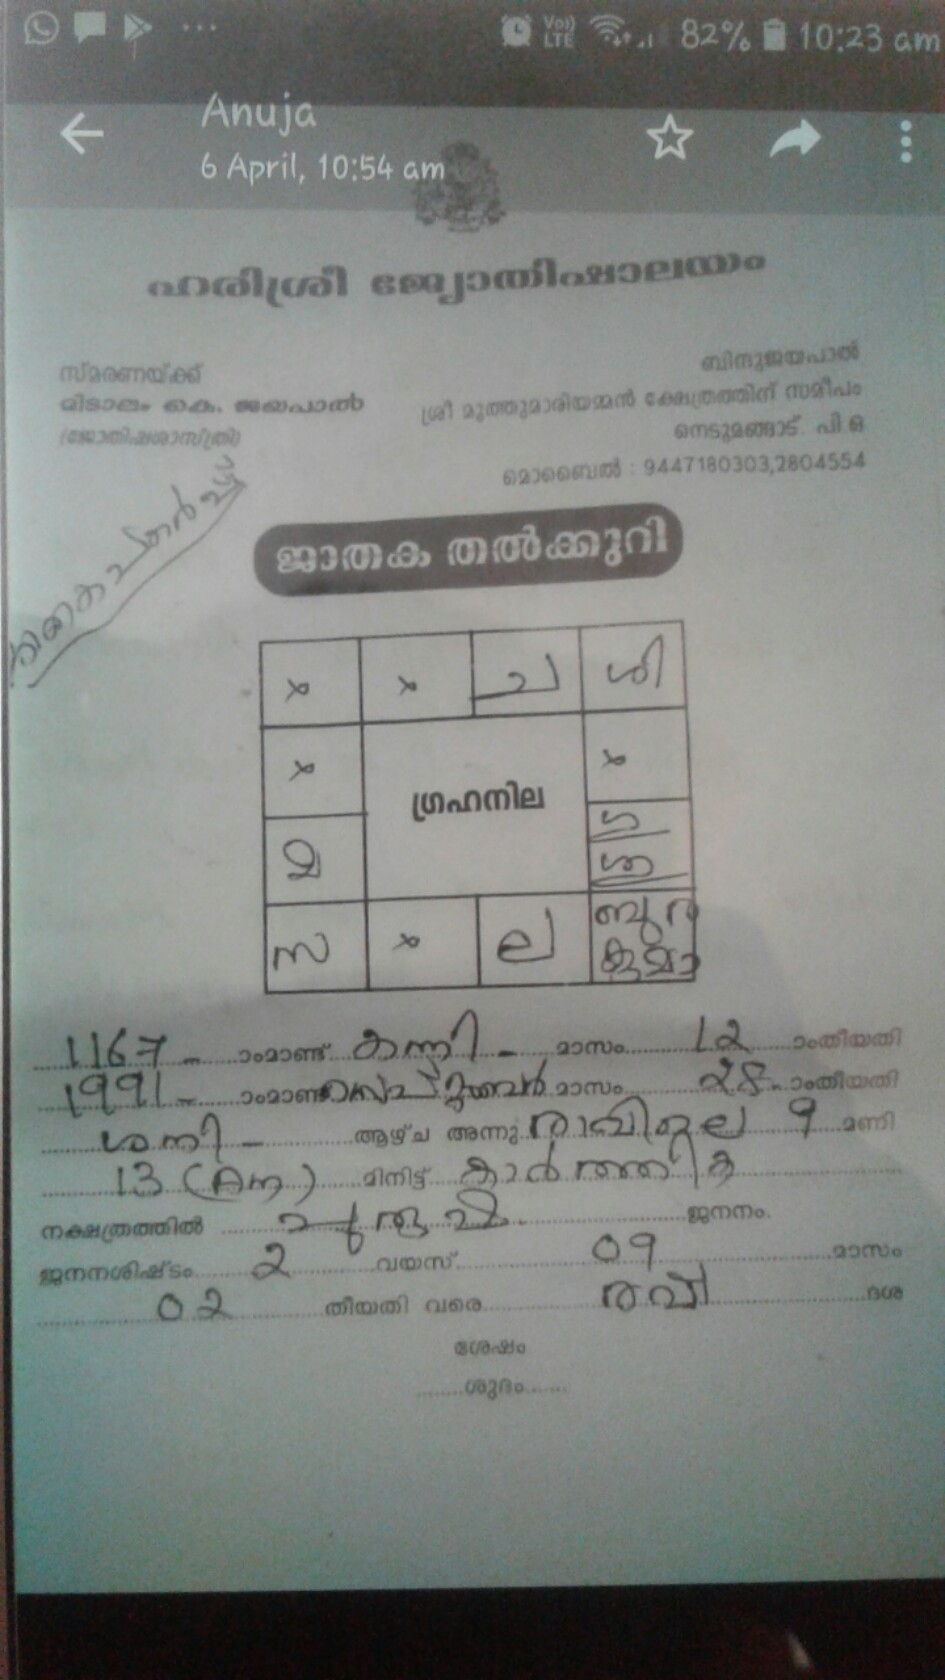 82% 10:23 am
Anuja
6 April, 10:54 am
ഹരിശ്രീ ജ്യോതിഷാലയം
സ്മരണയ്ക്ക്
മിടാലം കെ. ജയപാൽ
(ജ്യോതിഷശാസ്ത്രി)
ബിന്ദുജയപാൽ
ശ്രീ മുത്തുമാരിയമ്മൻ ക്ഷേത്രത്തിന് സമീപം
നെടുമങ്ങാട്. പി.ഒ
മൊബൈൽ : 9447180303,2804554
ജാതക തൽക്കുറി
x x ച ശി
x x
ഗ്രഹനില
ഗു
മ ശു
സ x ല ബു ര
കു മാ
1167 - ാംമാണ്ട് കന്നി - മാസം 12 ാംതീയതി
1991 - ാംമാണ്ട് സെപ്റ്റംബർ മാസം 28 ാംതീയതി
ശനി - ആഴ്ച അന്നു രാവിലെ 9 മണി
13 (Am) മിനിട്ട് കാർത്തിക
നക്ഷത്രത്തിൽ പുരുഷ ജനനം.
ജനനശിഷ്ടം 2 വയസ് 09 മാസം
02 തീയതി വരെ രവി ദശ
ശേഷം
ശുഭം